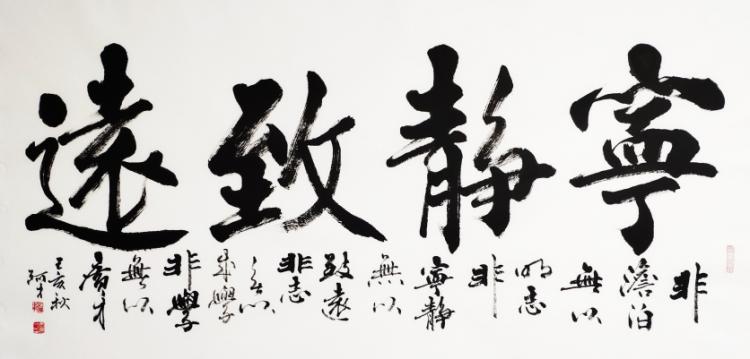 寧靜致遠
非
澹泊
無以
明志
非
寧靜
無以
致遠
非志
无以
成學
非學
無以
廣才
己亥秋